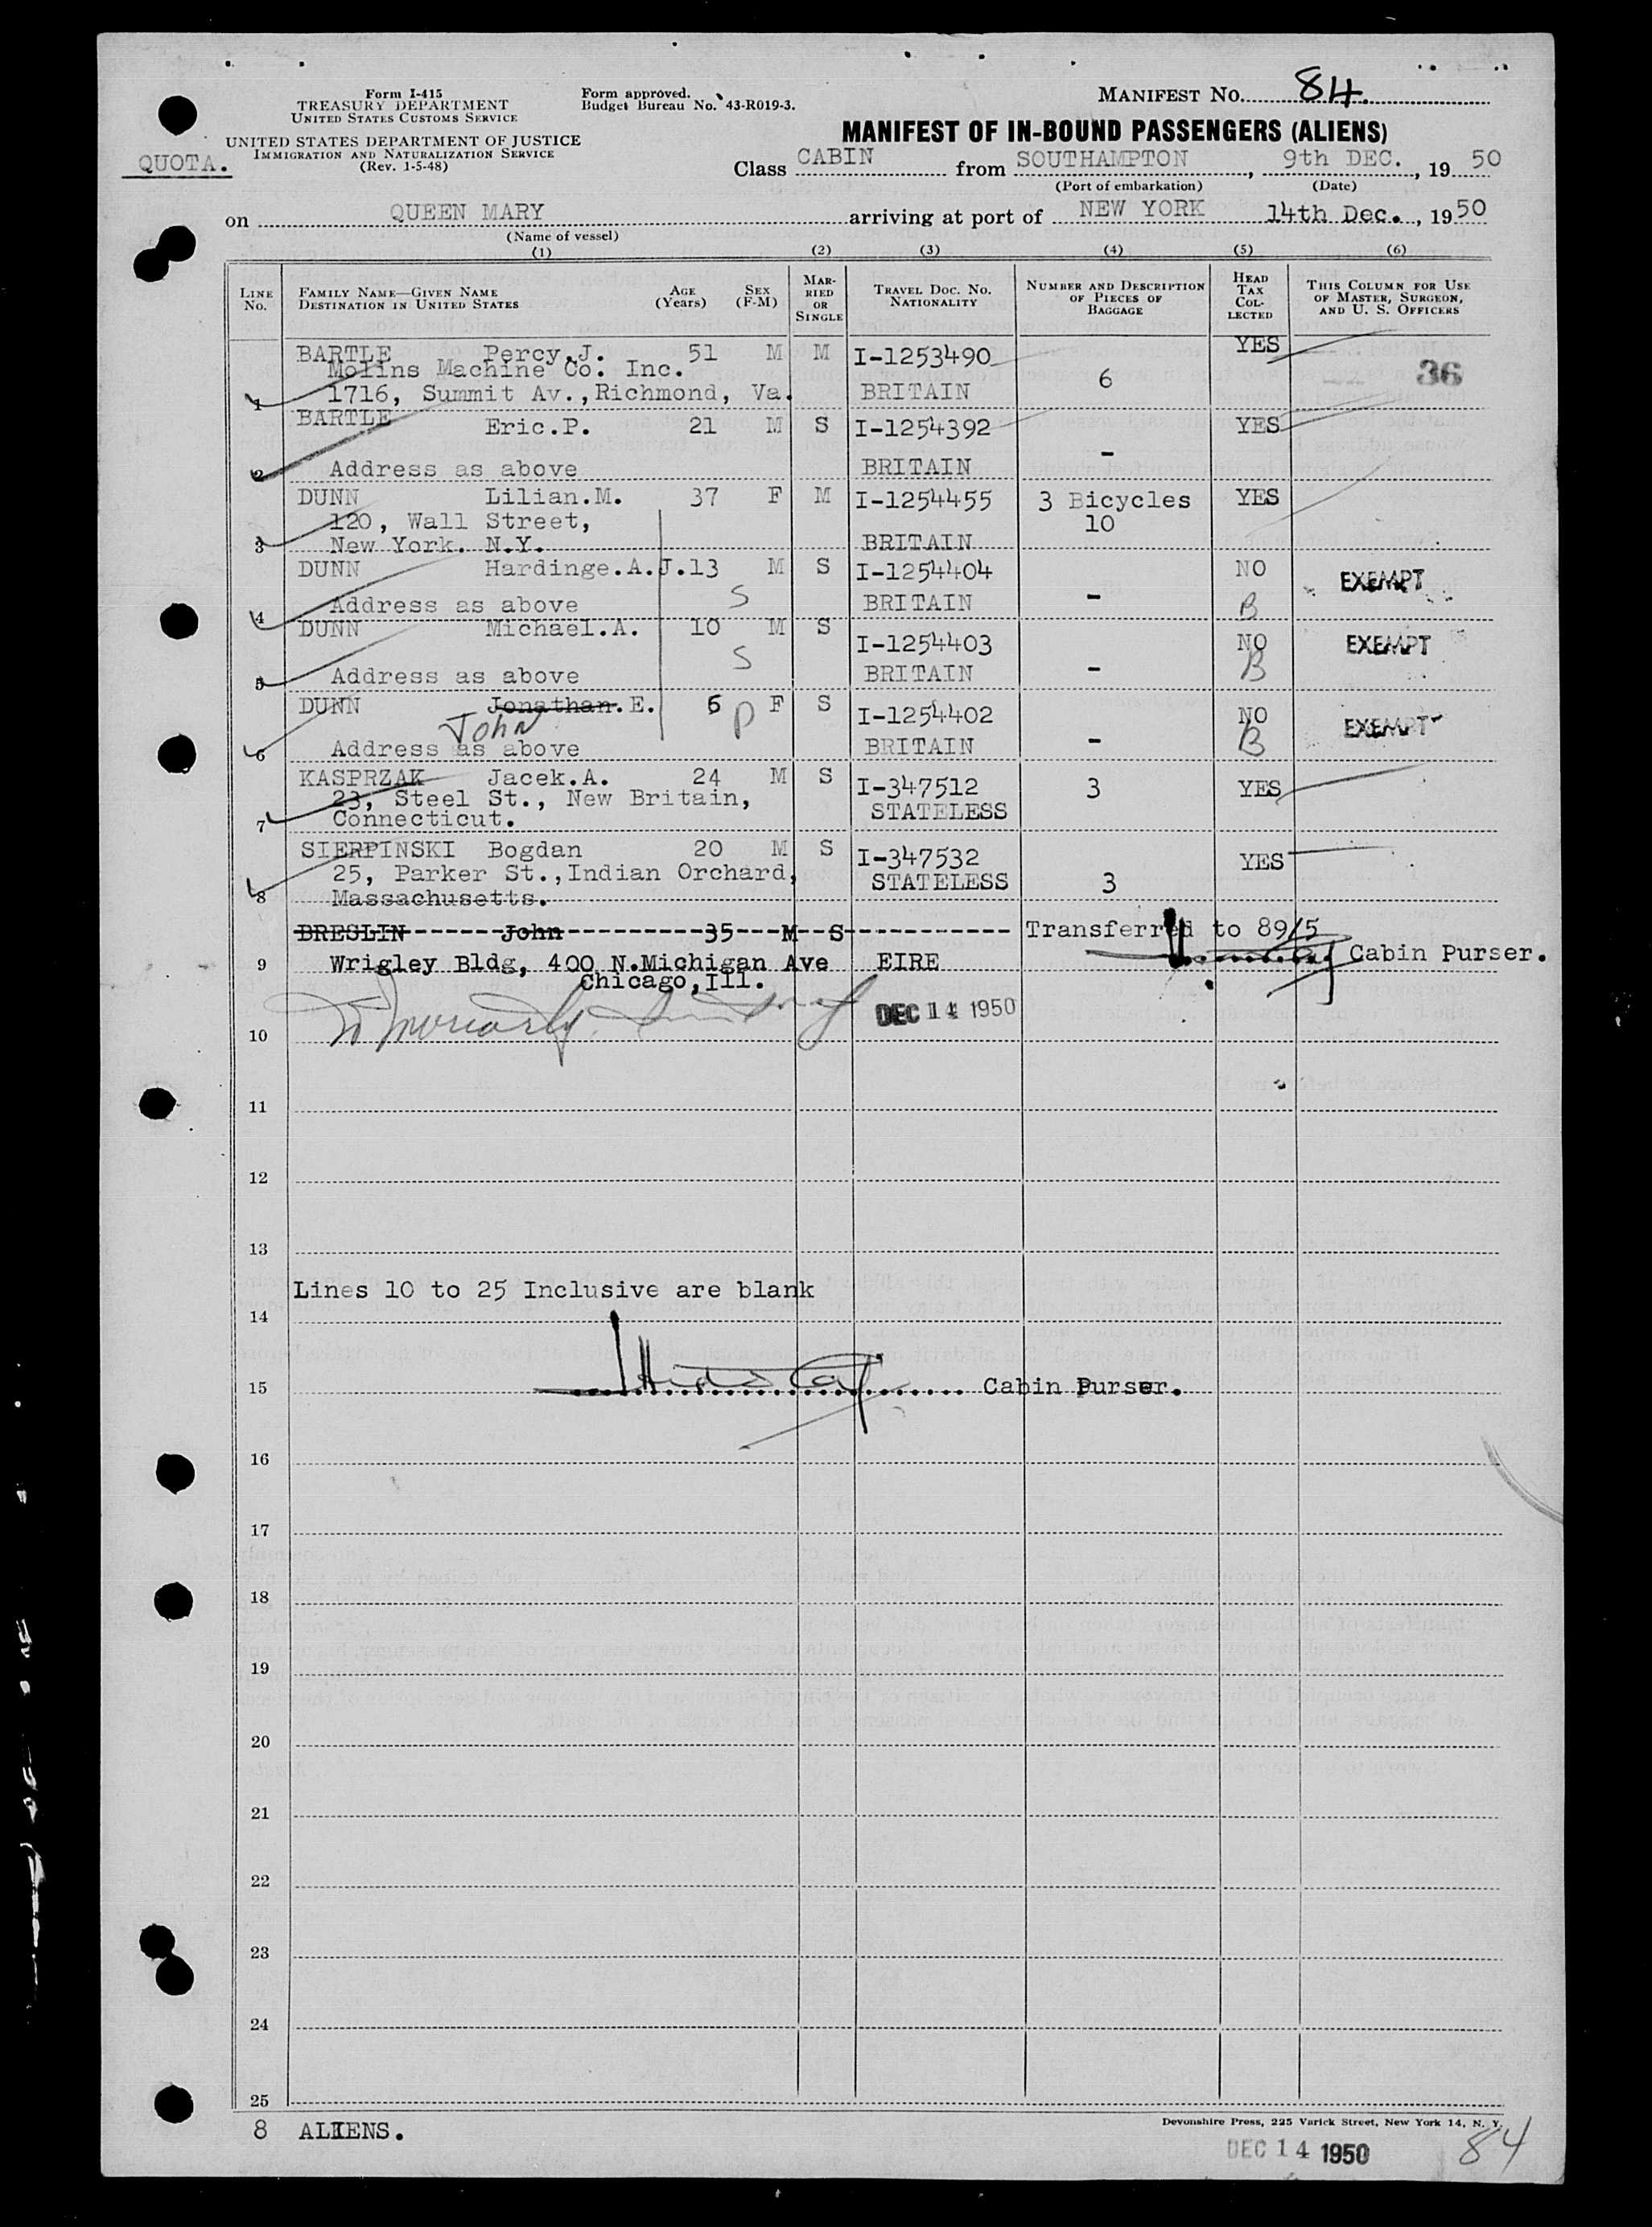 Form I-415
TREASURY DEPARTMENT
UNITED STATES CUSTOMS SERVICE
Form approved.
Budget Bureau No. 43-R019-3.
MANIFEST NO. 84
UNITED STATES DEPARTMENT OF JUSTICE
IMMIGRATION AND NATURALIZATION SERVICE
(Rev. 1-5-48)
QUOTA.
MANIFEST OF IN-BOUND PASSENGERS (ALIENS)
Class CABIN from SOUTHAMPTON, 9th DEC., 19 50
(Port of embarkation) (Date)
on QUEEN MARY arriving at port of NEW YORK 14th Dec., 19 50
(Name of vessel)
(1) (2) (3) (4) (5) (6)
LINE NO. FAMILY NAME—GIVEN NAME DESTINATION IN UNITED STATES AGE (Years) SEX (F-M) MARRIED OR SINGLE TRAVEL DOC. NO. NATIONALITY NUMBER AND DESCRIPTION OF PIECES OF BAGGAGE HEAD TAX COLLECTED THIS COLUMN FOR USE OF MASTER, SURGEON, AND U. S. OFFICERS
BARTLE Percy.J. 51 M M I-1253490 YES
Molins Machine Co. Inc. 6 36
1 1716, Summit Av.,Richmond, Va. BRITAIN
BARTLE Eric.P. 21 M S I-1254392 YES
2 Address as above BRITAIN -
DUNN Lilian.M. 37 F M I-1254455 3 Bicycles YES
120, Wall Street, 10
3 New York. N.Y. BRITAIN
DUNN Hardinge.A.J. 13 M S I-1254404 NO EXEMPT
4 Address as above S BRITAIN - B
DUNN Michael.A. 10 M S I-1254403 NO EXEMPT
5 Address as above S BRITAIN - B
DUNN Jonathan.E. 6 P F S I-1254402 NO EXEMPT
John
6 Address as above BRITAIN - B
KASPRZAK Jacek.A. 24 M S I-347512 3 YES
23, Steel St., New Britain, STATELESS
7 Connecticut.
SIERPINSKI Bogdan 20 M S I-347532 YES
25, Parker St.,Indian Orchard, STATELESS 3
8 Massachusetts.
BRESLIN------John----------35---M--S----------- Transferred to 89/5
9 Wrigley Bldg, 400 N.Michigan Ave EIRE Cabin Purser.
Chicago,Ill.
DEC 14 1950
10
11
12
13
Lines 10 to 25 Inclusive are blank
14
15 Cabin Purser.
16
17
18
19
20
21
22
23
24
25
8 ALIENS.
Devonshire Press, 225 Varick Street, New York 14, N. Y.
DEC 14 1950 84